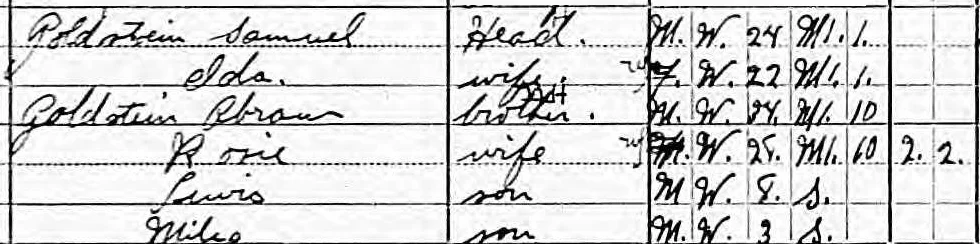 Goldstein Samuel Head. M. W. 24 M1. 1.
Ida. wife. F. W. 22 M1. 1.
Goldstein Abram brother. M. W. 29. M1. 10
Rosie wife W. 28. M1. 10 2. 2.
Lewis son M W. 8. S.
Miles son M. W. 3 S.